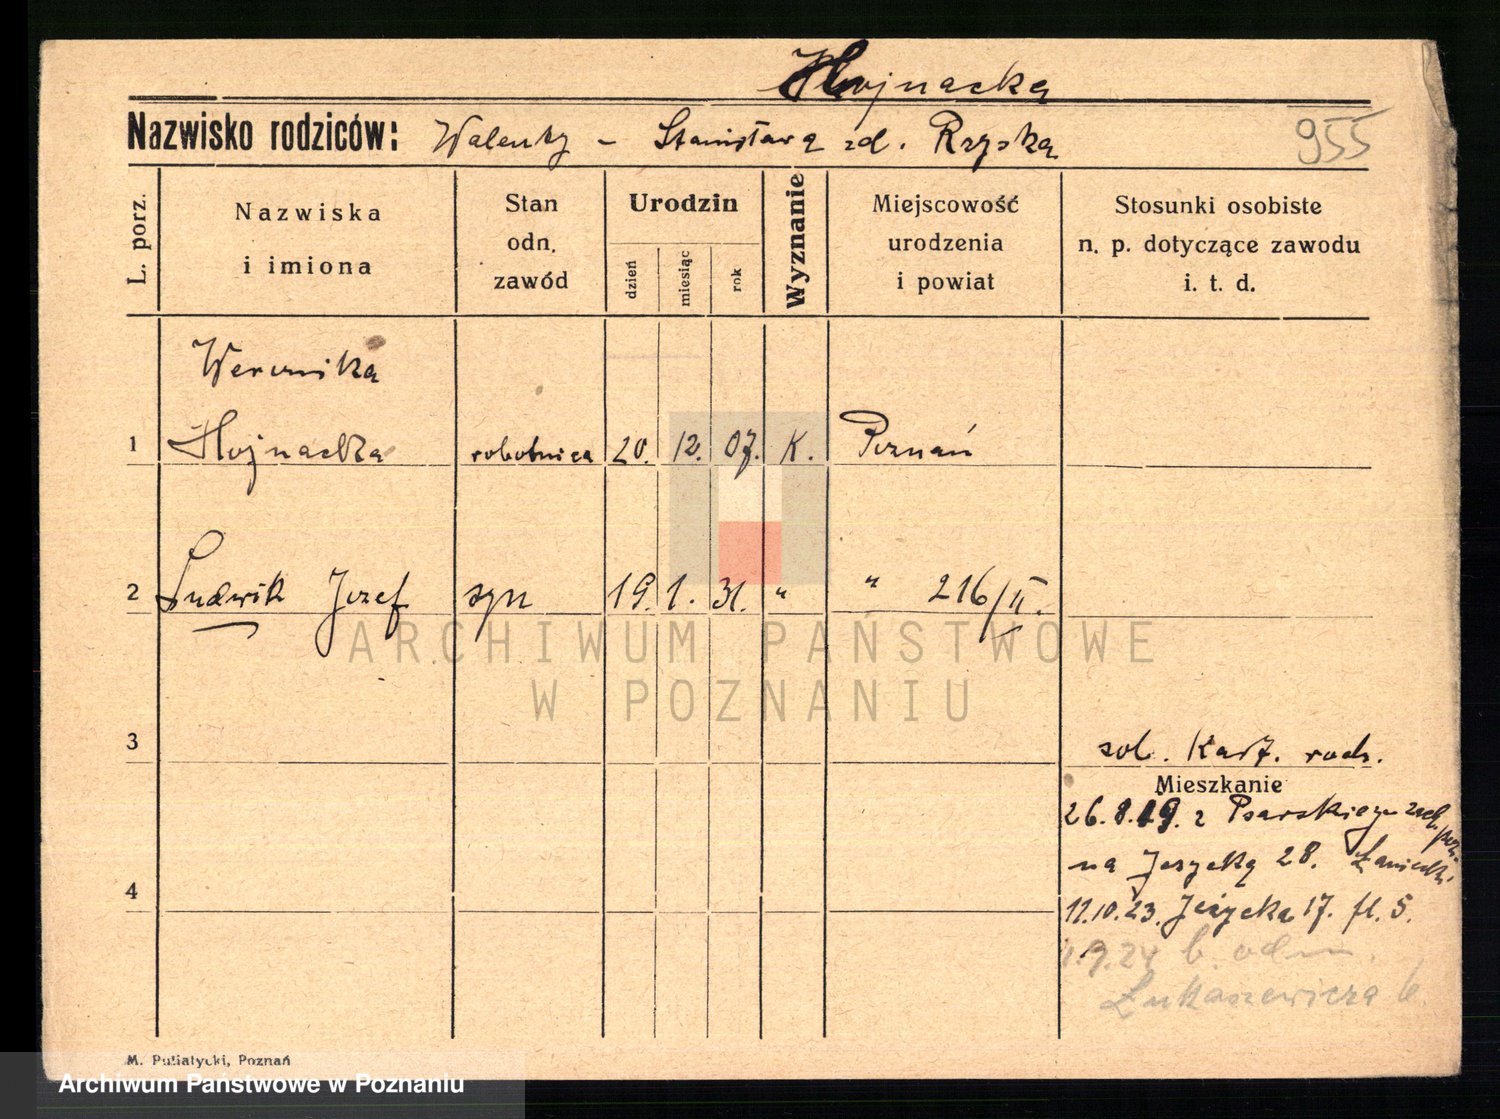 Hojnacka
Nazwisko rodziców: Walenty - Stanisława zd. Rzyska 955
L. porz.
Nazwiska
i imiona
Stan
odn.
zawód
Urodzin
dzień
miesiąc
rok
Wyznanie
Miejscowość
urodzenia
i powiat
Stosunki osobiste
n. p. dotyczące zawodu
i. t. d.
Weronika
1 Hojnacka robotnica 20. 12. 07. K. Poznań
2 Ludwik Jozef syn 19. 1. 31. " " 216/II.
ARCHIWUM PAŃSTWOWE
W POZNANIU
3
sob. Kart. rodz.
Mieszkanie
26.8.19. z Psarskiego zach. pozn.
na Jerzycką 28.
4
11.10.23. Jeżycka 17. fl. 5.
1.9.24 b. odm.
Łukaszewicza 6.
M. Putiatycki, Poznań
Archiwum Państwowe w Poznaniu